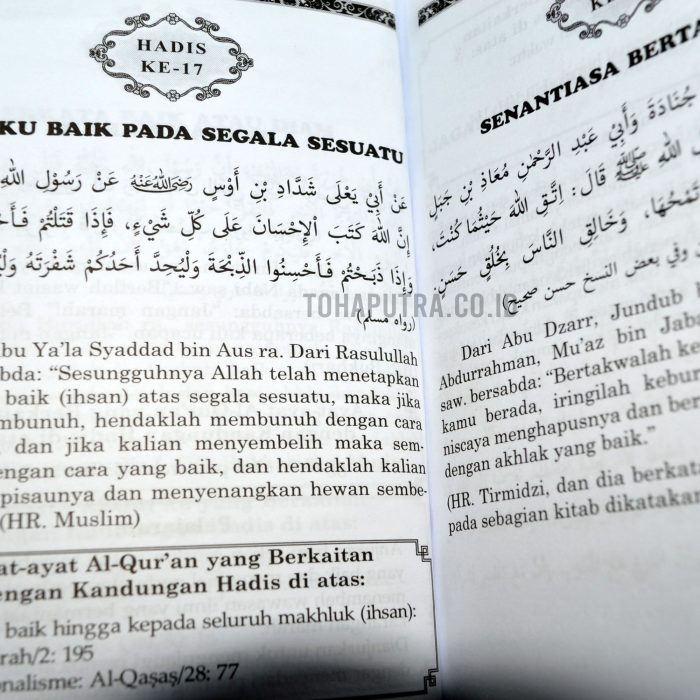 HADIS
KE-17
KU BAIK PADA SEGALA SESUATU
عَنْ أَبِي يَعْلَى شَدَّادِ بْنِ أَوْسٍ رَضِيَ اللهُ عَنْهُ عَنْ رَسُوْلِ اللهِ
إِنَّ اللهَ كَتَبَ الْإِحْسَانَ عَلَى كُلِّ شَيْءٍ، فَإِذَا قَتَلْتُمْ
وَإِذَا ذَبَحْتُمْ فَأَحْسِنُوا الذِّبْحَةَ وَلْيُحِدَّ أَحَدُكُمْ شَفْرَتَهُ
(رواه مسلم)
bu Ya'la Syaddad bin Aus ra. Dari Rasulullah
abda: “Sesungguhnya Allah telah menetapkan
baik (ihsan) atas segala sesuatu, maka jika
mbunuh, hendaklah membunuh dengan cara
, dan jika kalian menyembelih maka sem-
engan cara yang baik, dan hendaklah kalian
pisaunya dan menyenangkan hewan sembe-
(HR. Muslim)
at-ayat Al-Qur'an yang Berkaitan
engan Kandungan Hadis di atas:
baik hingga kepada seluruh makhluk (ihsan):
rah/2: 195
onalisme: Al-Qaṣaṣ/28: 77
TOHAPUTRA.CO.ID
SENANTIASA BERTA
جُنَادَةَ وَأَبِي عَبْدِ الرَّحْمٰنِ مُعَاذِ بْنِ جَبَلٍ
اللهِ ﷺ قَالَ: اِتَّقِ اللهَ حَيْثُمَا كُنْتَ،
تَمْحُهَا، وَخَالِقِ النَّاسَ بِخُلُقٍ حَسَنٍ
وفي بعض النسخ حسن صحيح)
Dari Abu Dzarr, Jundub b
Abdurrahman, Mu'az bin Jaba
saw. bersabda: “Bertakwalah ke
kamu berada, iringilah kebur
niscaya menghapusnya dan ber
dengan akhlak yang baik.”
(HR. Tirmidzi, dan dia berkata
pada sebagian kitab dikatakan